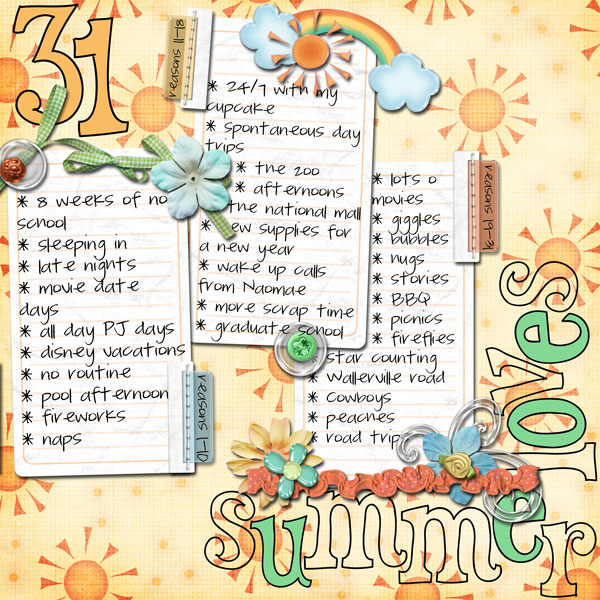 31
reasons 11-18
* 24/7 with my
cupcake
* spontaneous day
trips
* the zoo
* afternoons
the national mall
* new supplies for
a new year
* wake up calls
from Naomae
* more scrap time
* graduate school
* 8 weeks of no
school
* sleeping in
* late nights
* movie date
days
* all day PJ days
* disney vacations
* no routine
* pool afternoon
* fireworks
* naps
reasons 1-10
reasons 19-31
* lots o
movies
* giggles
* bubbles
* hugs
* stories
* BBQ
* picnics
* fireflies
* star counting
* Wallerville road
* Cowboys
* peaches
* road trip
summer
loves